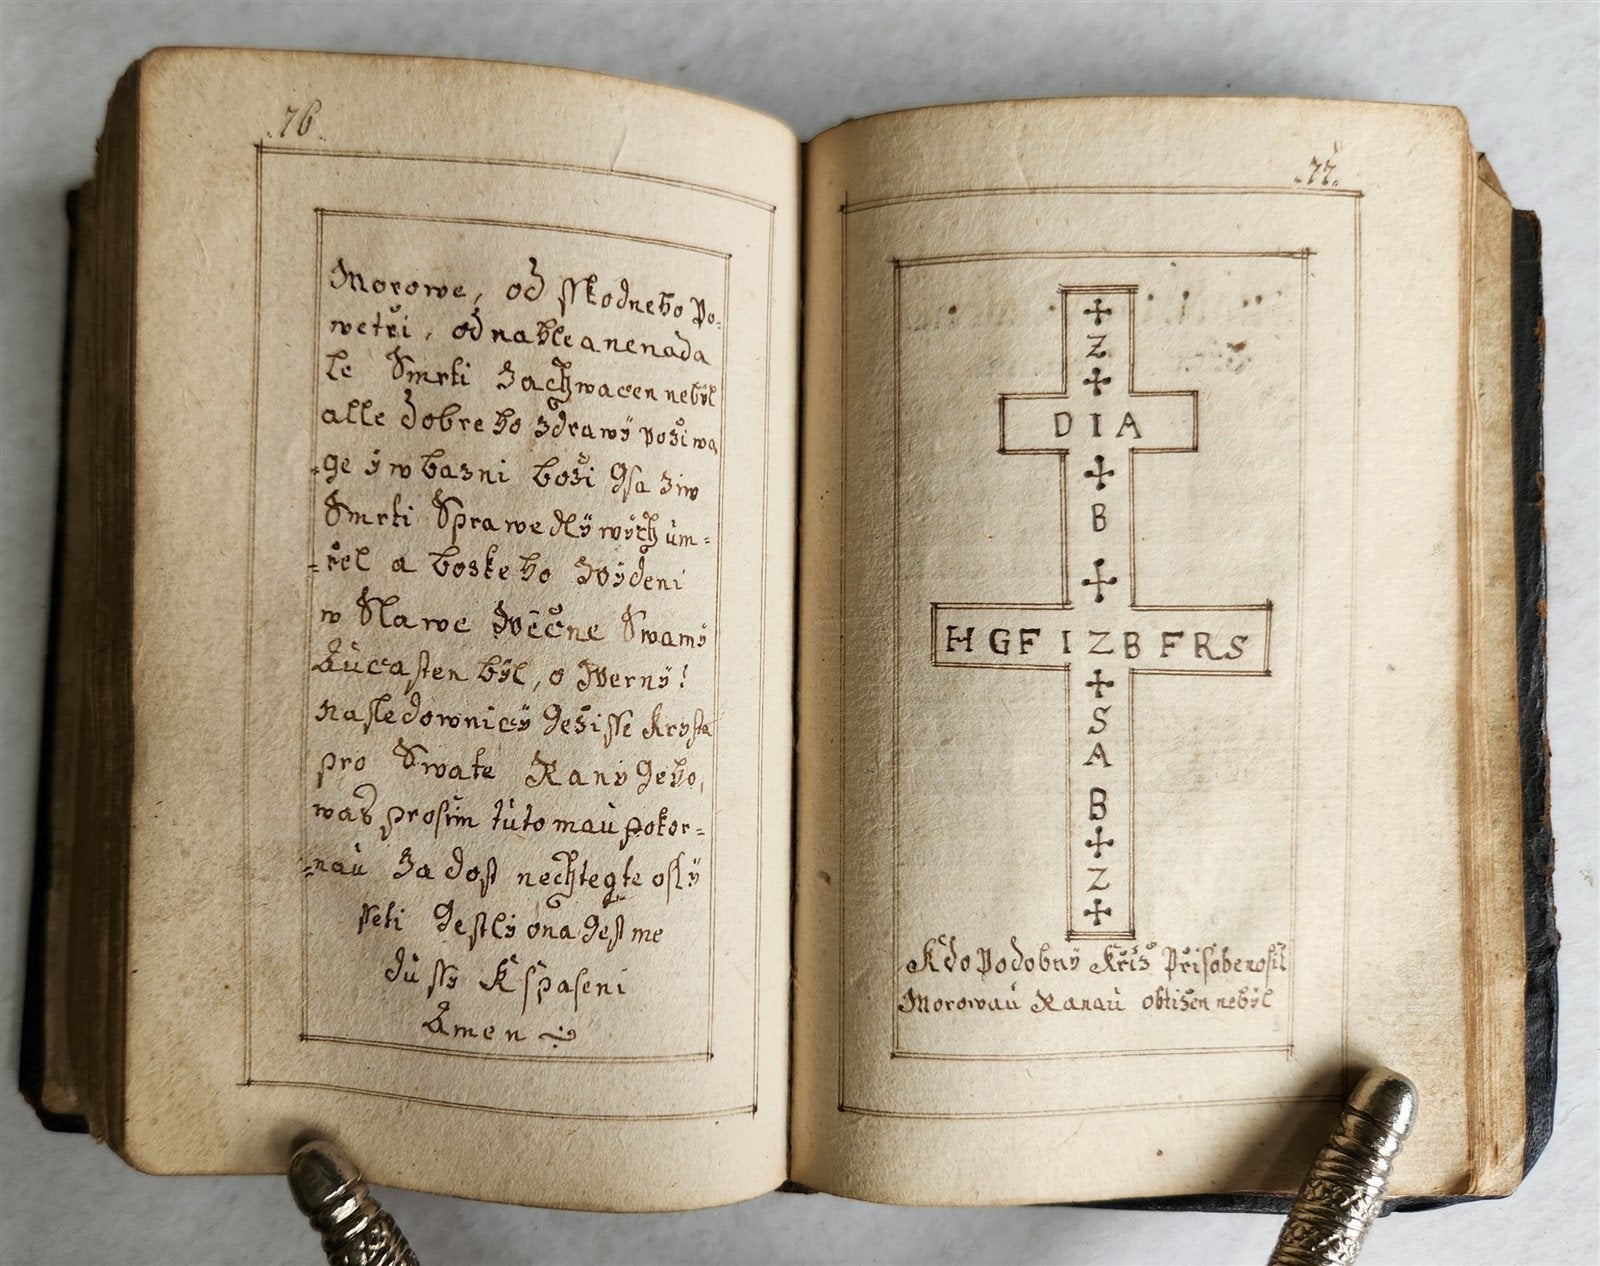 .76.
Morowe, od sskodneho Po-
wetři, od nahle a nenada
le Smrti Zachwacen nebÿl
alle dobreho Zdrawÿ požiwa
=ge ÿ w bazni boži gsa žiw
Smrti Sprawedlÿwÿch ùm=
=řel a boskeho Widěni
w Slawe Wěčne Swamÿ
Aùčasten bÿl, o Wernÿ!
nasledownicÿ Gežisse Krysta
pro Swate Ranÿ Geho,
was prosÿm tùto maù pokor=
=naù Žadost nechtegte oslÿ
sseti Gestlÿ ona gest me
dùssÿ K spaseni
Amen
.77.
✢
Z
✢
DIA
✢
B
✢
HGF I Z B FRS
✢
S
A
B
✢
Z
✢
Kdo Podobnÿ Křiž Při sobe nosil
Morowaù Ranaù obtižen nebÿl